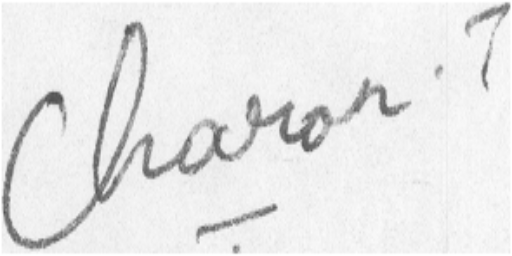 Charon. T